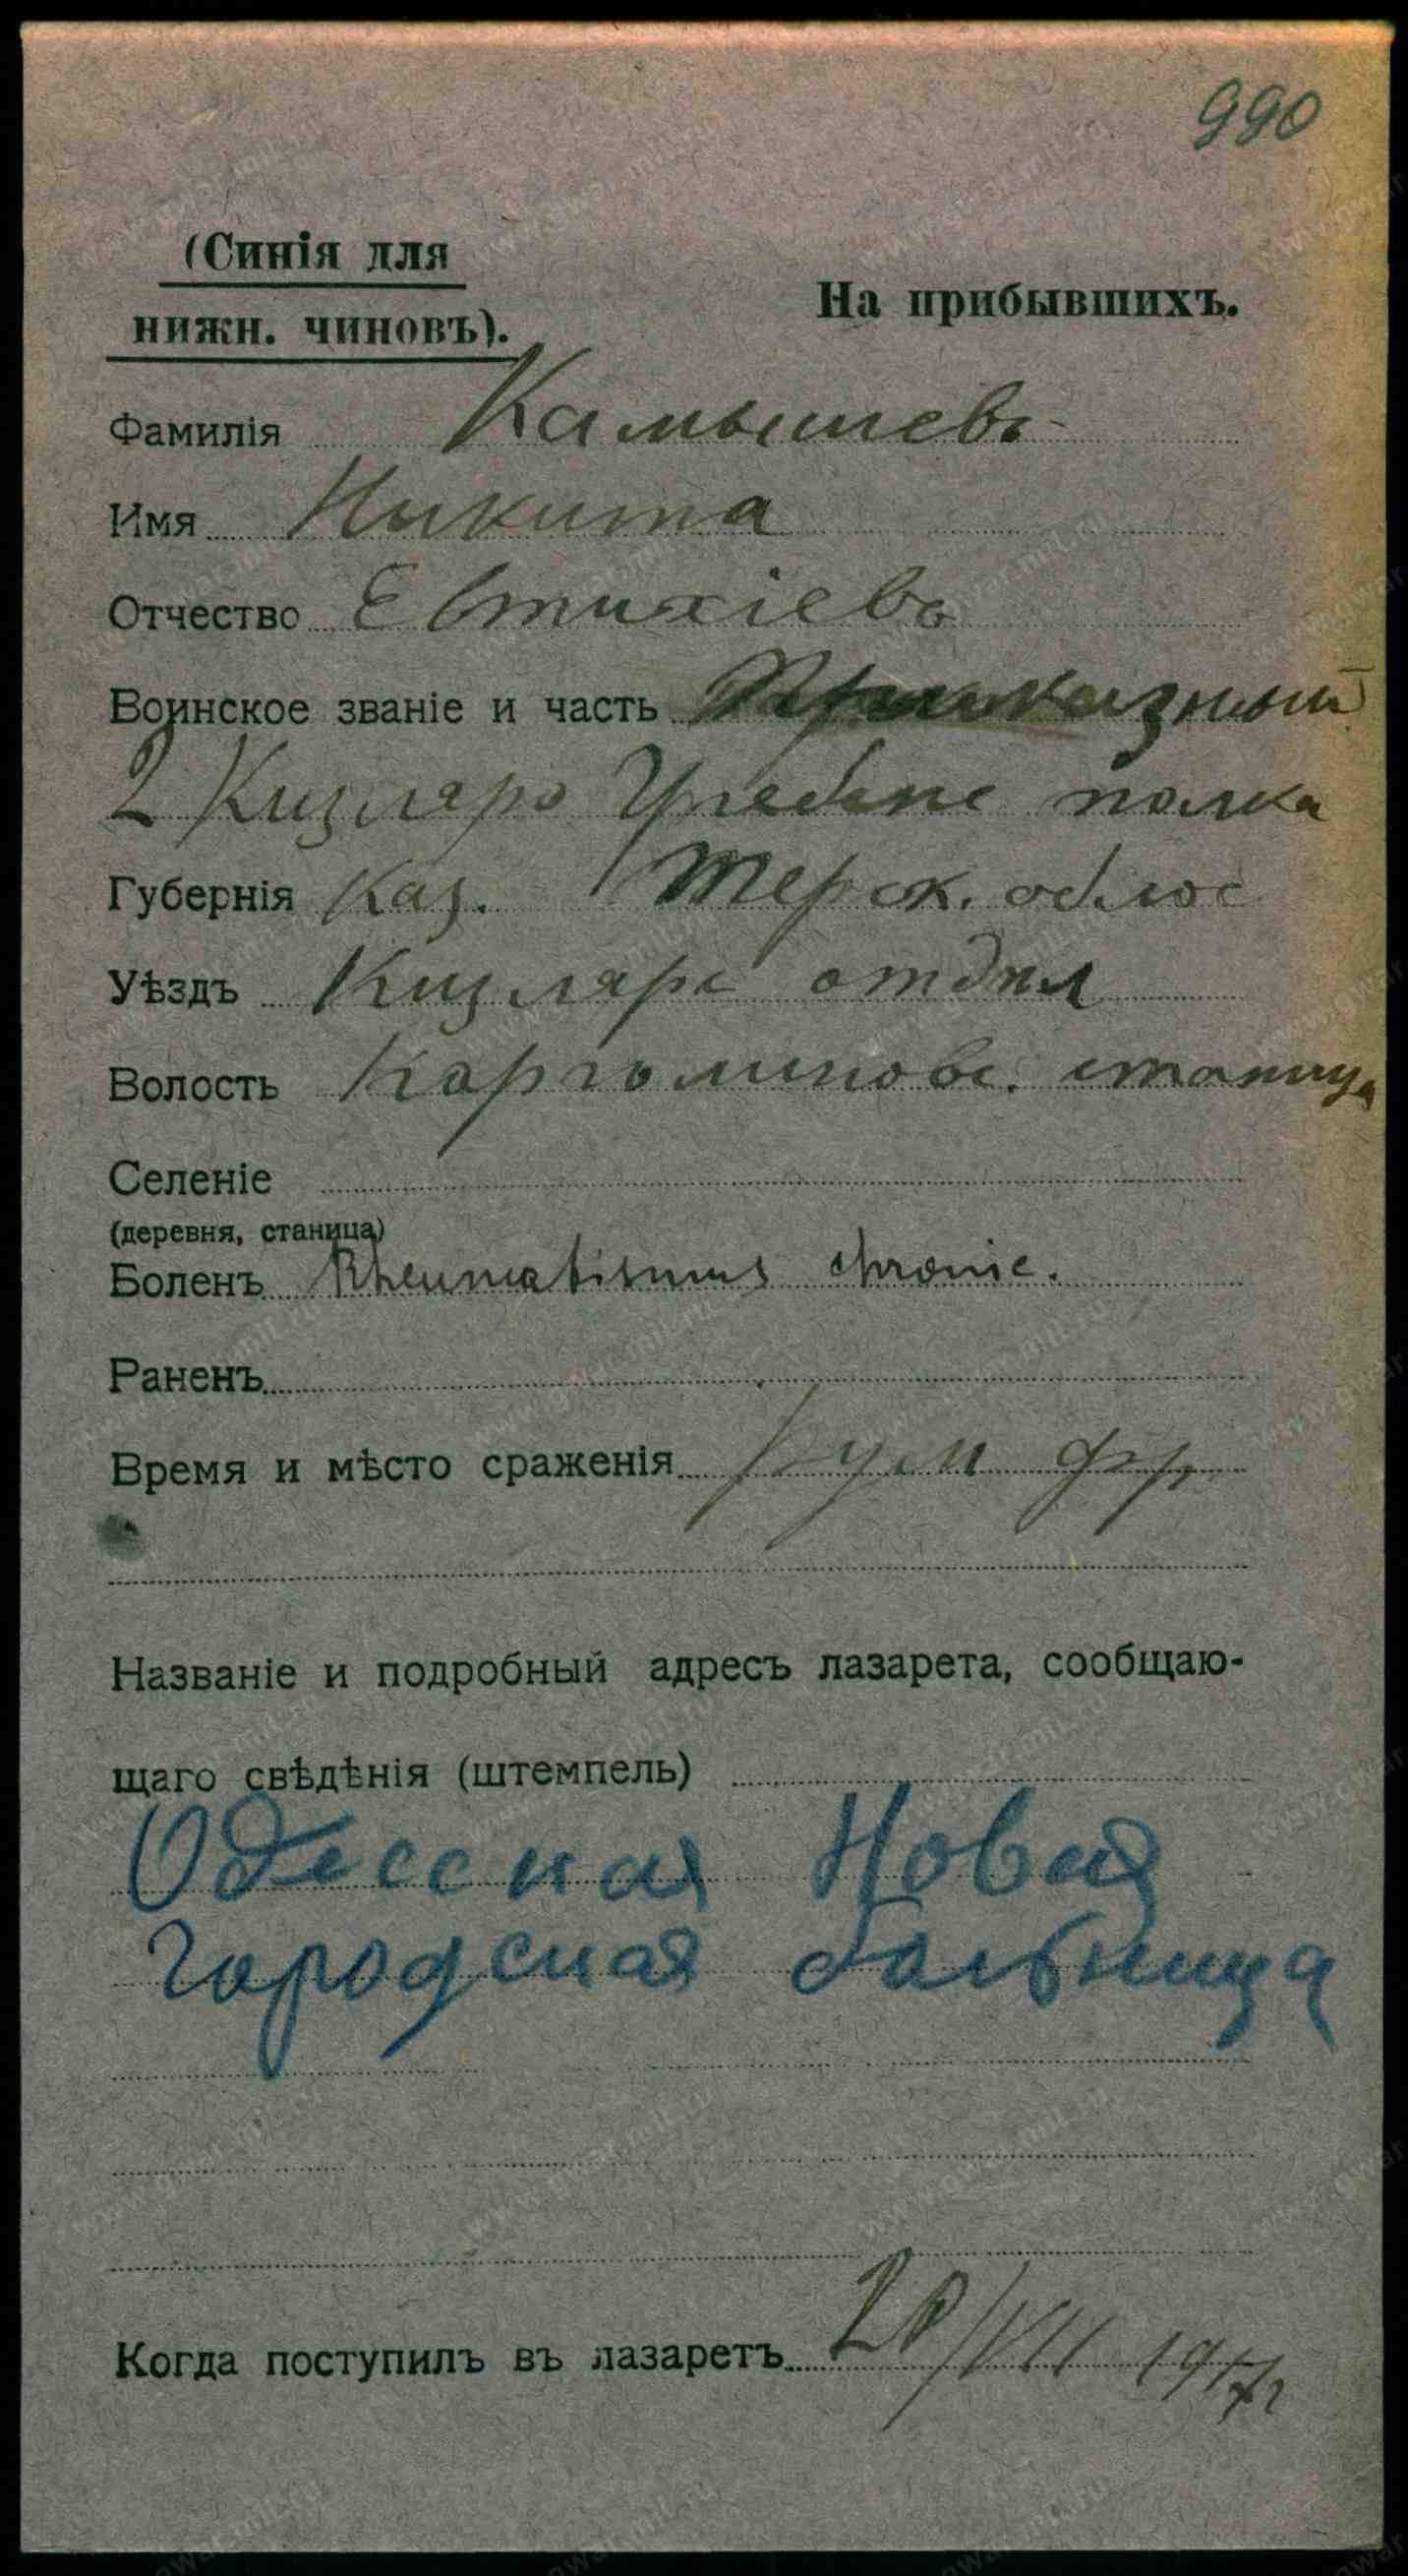 990
(Синія для
нижн. чиновъ).
На прибывшихъ.
Фамилія Камышевъ
Имя Никита
Отчество Евтихіевъ
Воинское званіе и часть Приказный
2 Кизляро Гребенс полка
Губернія Каз. Терск. облас
Уѣздъ Кизлярс отдѣл
Волость Каргалиновс. станица
Селеніе
(деревня, станица)
Боленъ Rheumatismus chronic.
Раненъ
Время и мѣсто сраженія Рум фр
Названіе и подробный адресъ лазарета, сообщаю-
щаго свѣдѣнія (штемпель)
Одесская Новая
городская больница
Когда поступилъ въ лазаретъ 20/VII 1917 г